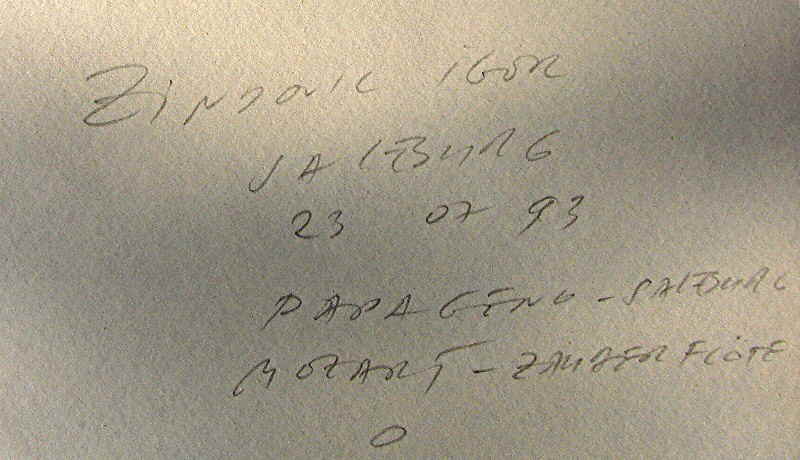 ZINDOVIC IGOR
SALZBURG
23 07 93
PAPAGENO - SALZBURG
MOZART - ZAUBERFLÖTE
O